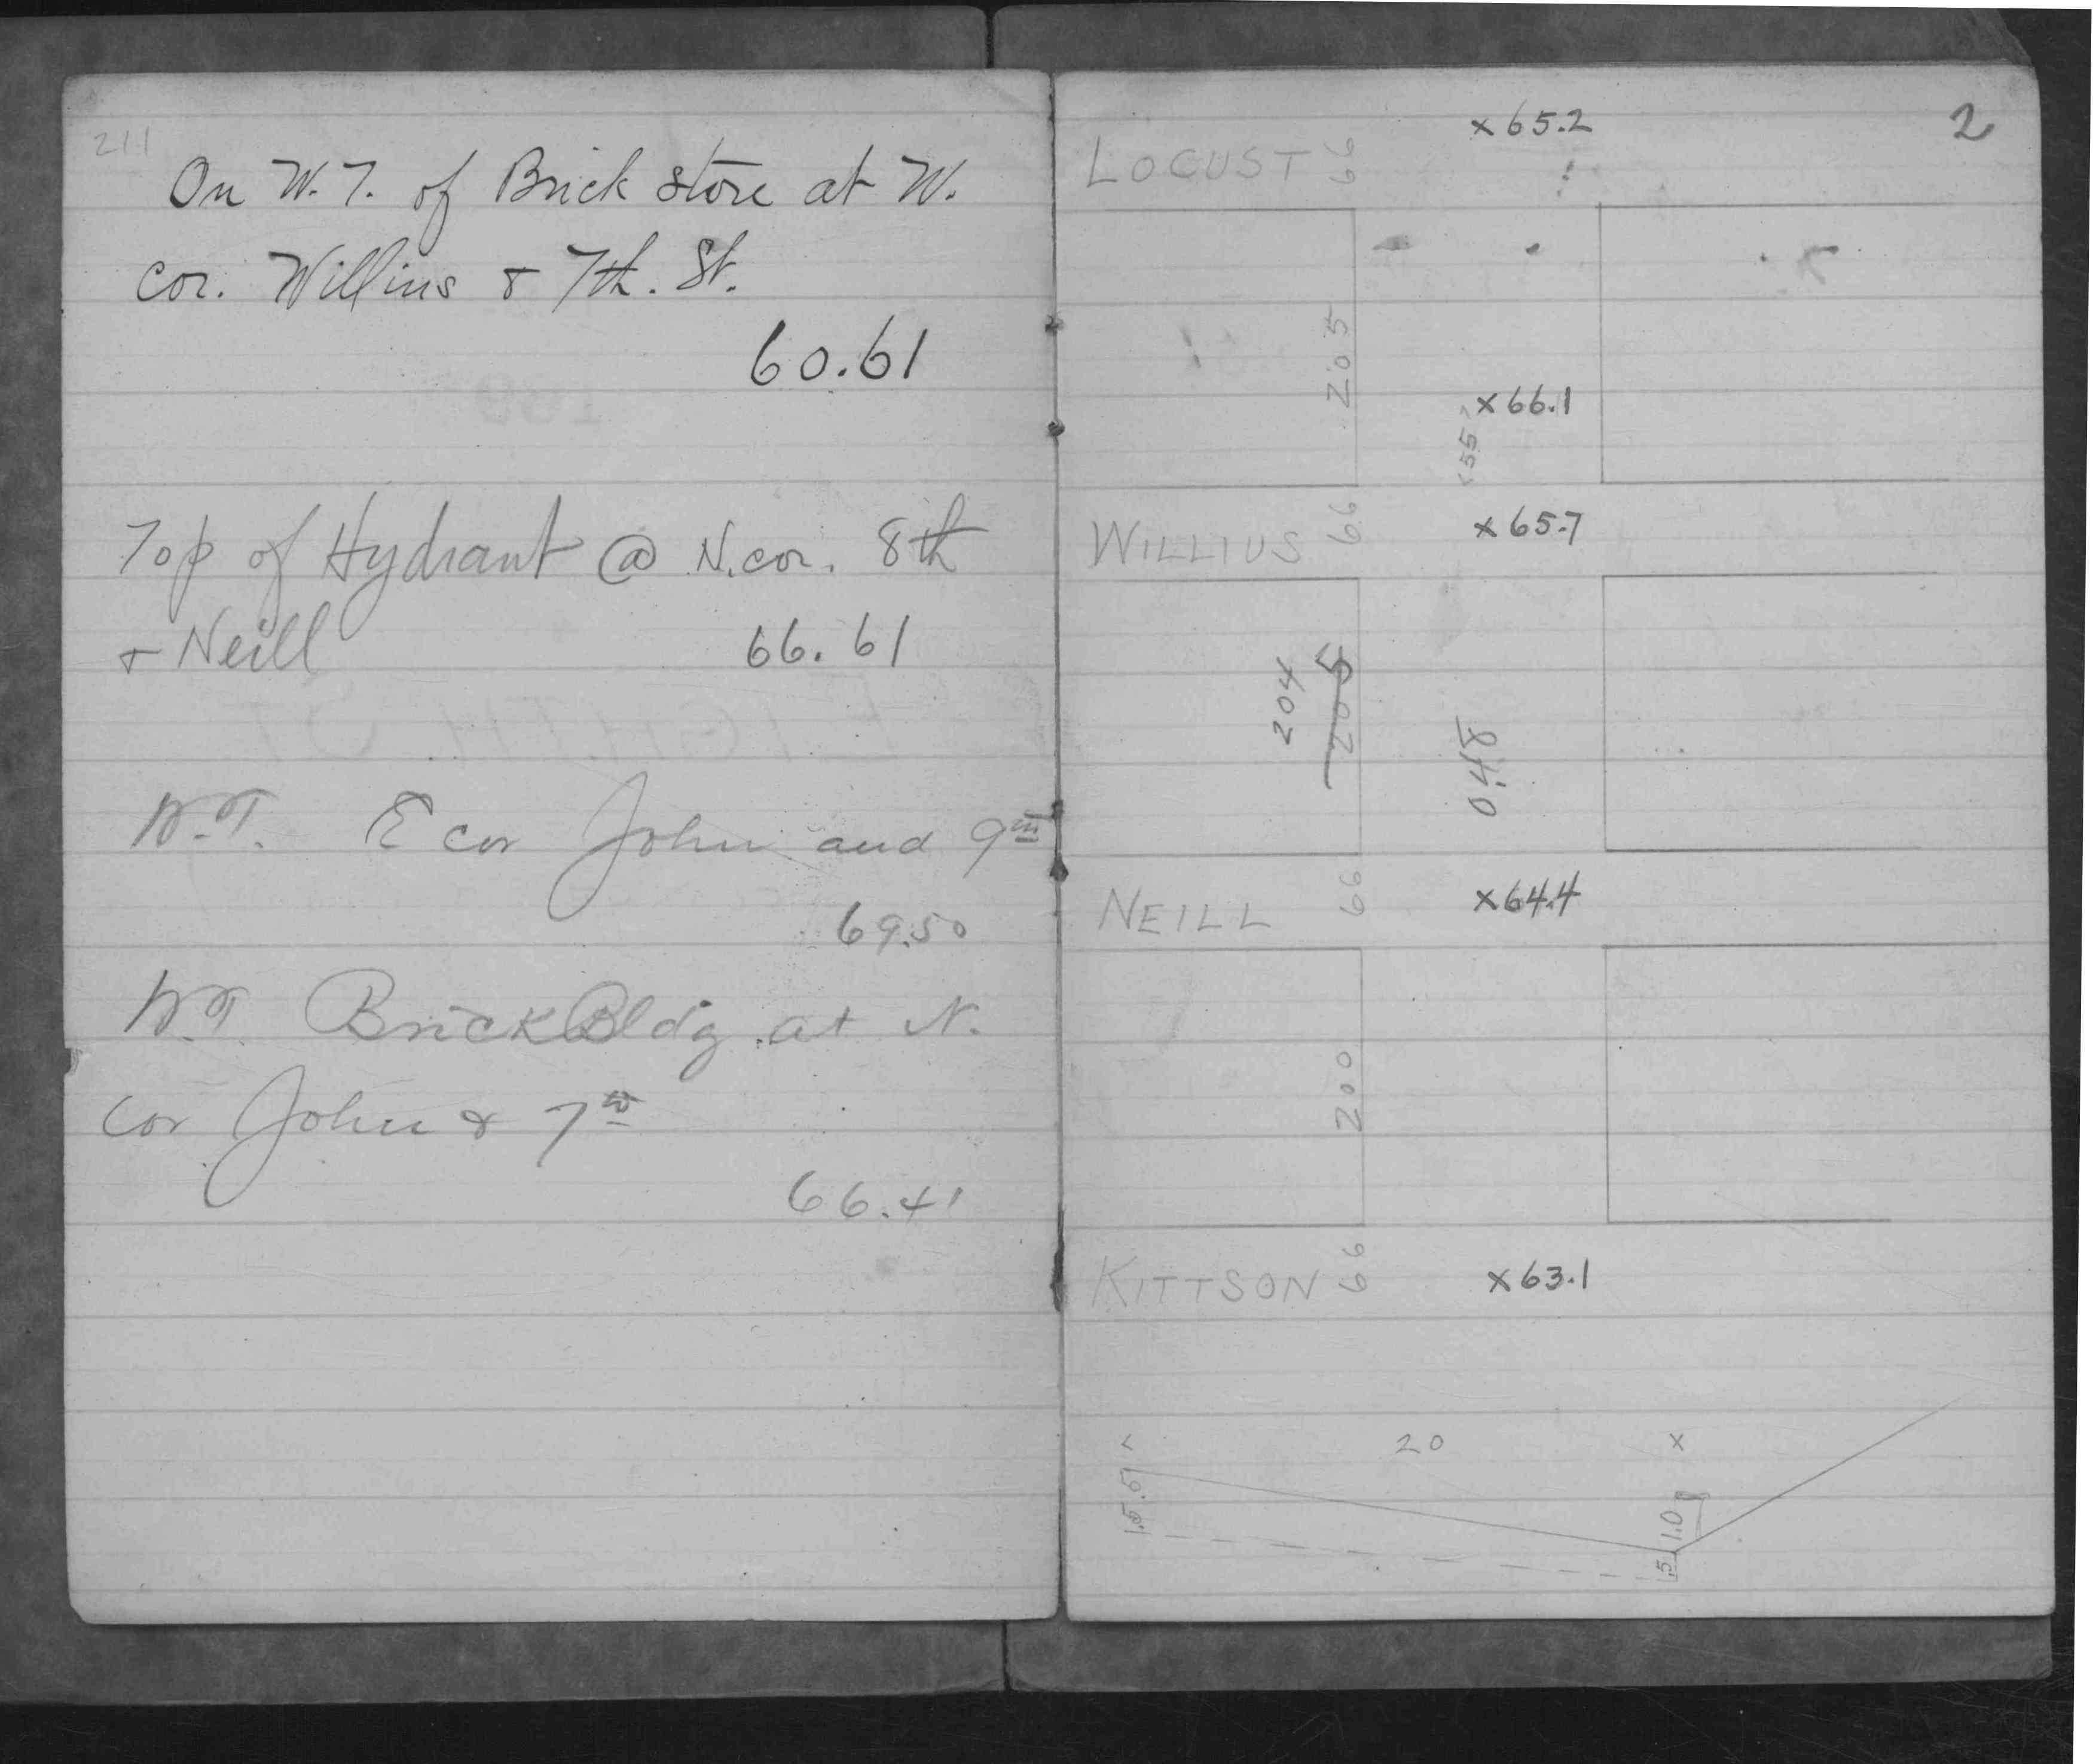 211
On W.T. of Brick store at W.
cor. Willius & 7th. St.
60.61
Top of Hydrant @ N.cor. 8th
& Neill 66.61
W.T. E cor John and 9th
69.50
W.T. Brick Bldg at N.
Cor John & 7th
66.41
2
x65.2
LOCUST 66
205
x66.1
<55>
WILLIUS 66 x65.7
204
205
NEILL 66 x64.4
200
KITTSON 66 x63.1
< 20 x
1.0
.5